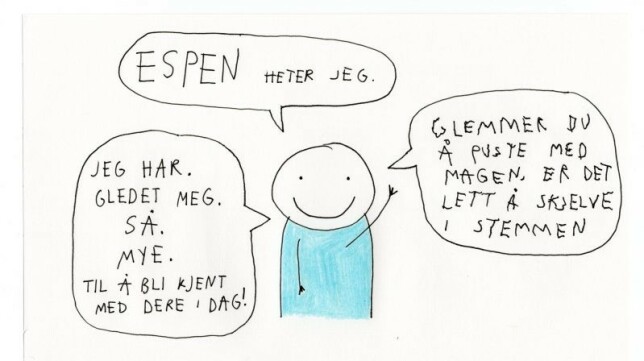 ESPEN HETER JEG.
JEG HAR.
GLEDET MEG.
SÅ.
MYE.
TIL Å BLI KJENT
MED DERE I DAG!
GLEMMER DU
Å PUSTE MED
MAGEN, ER DET
LETT Å SKJELVE
I STEMMEN